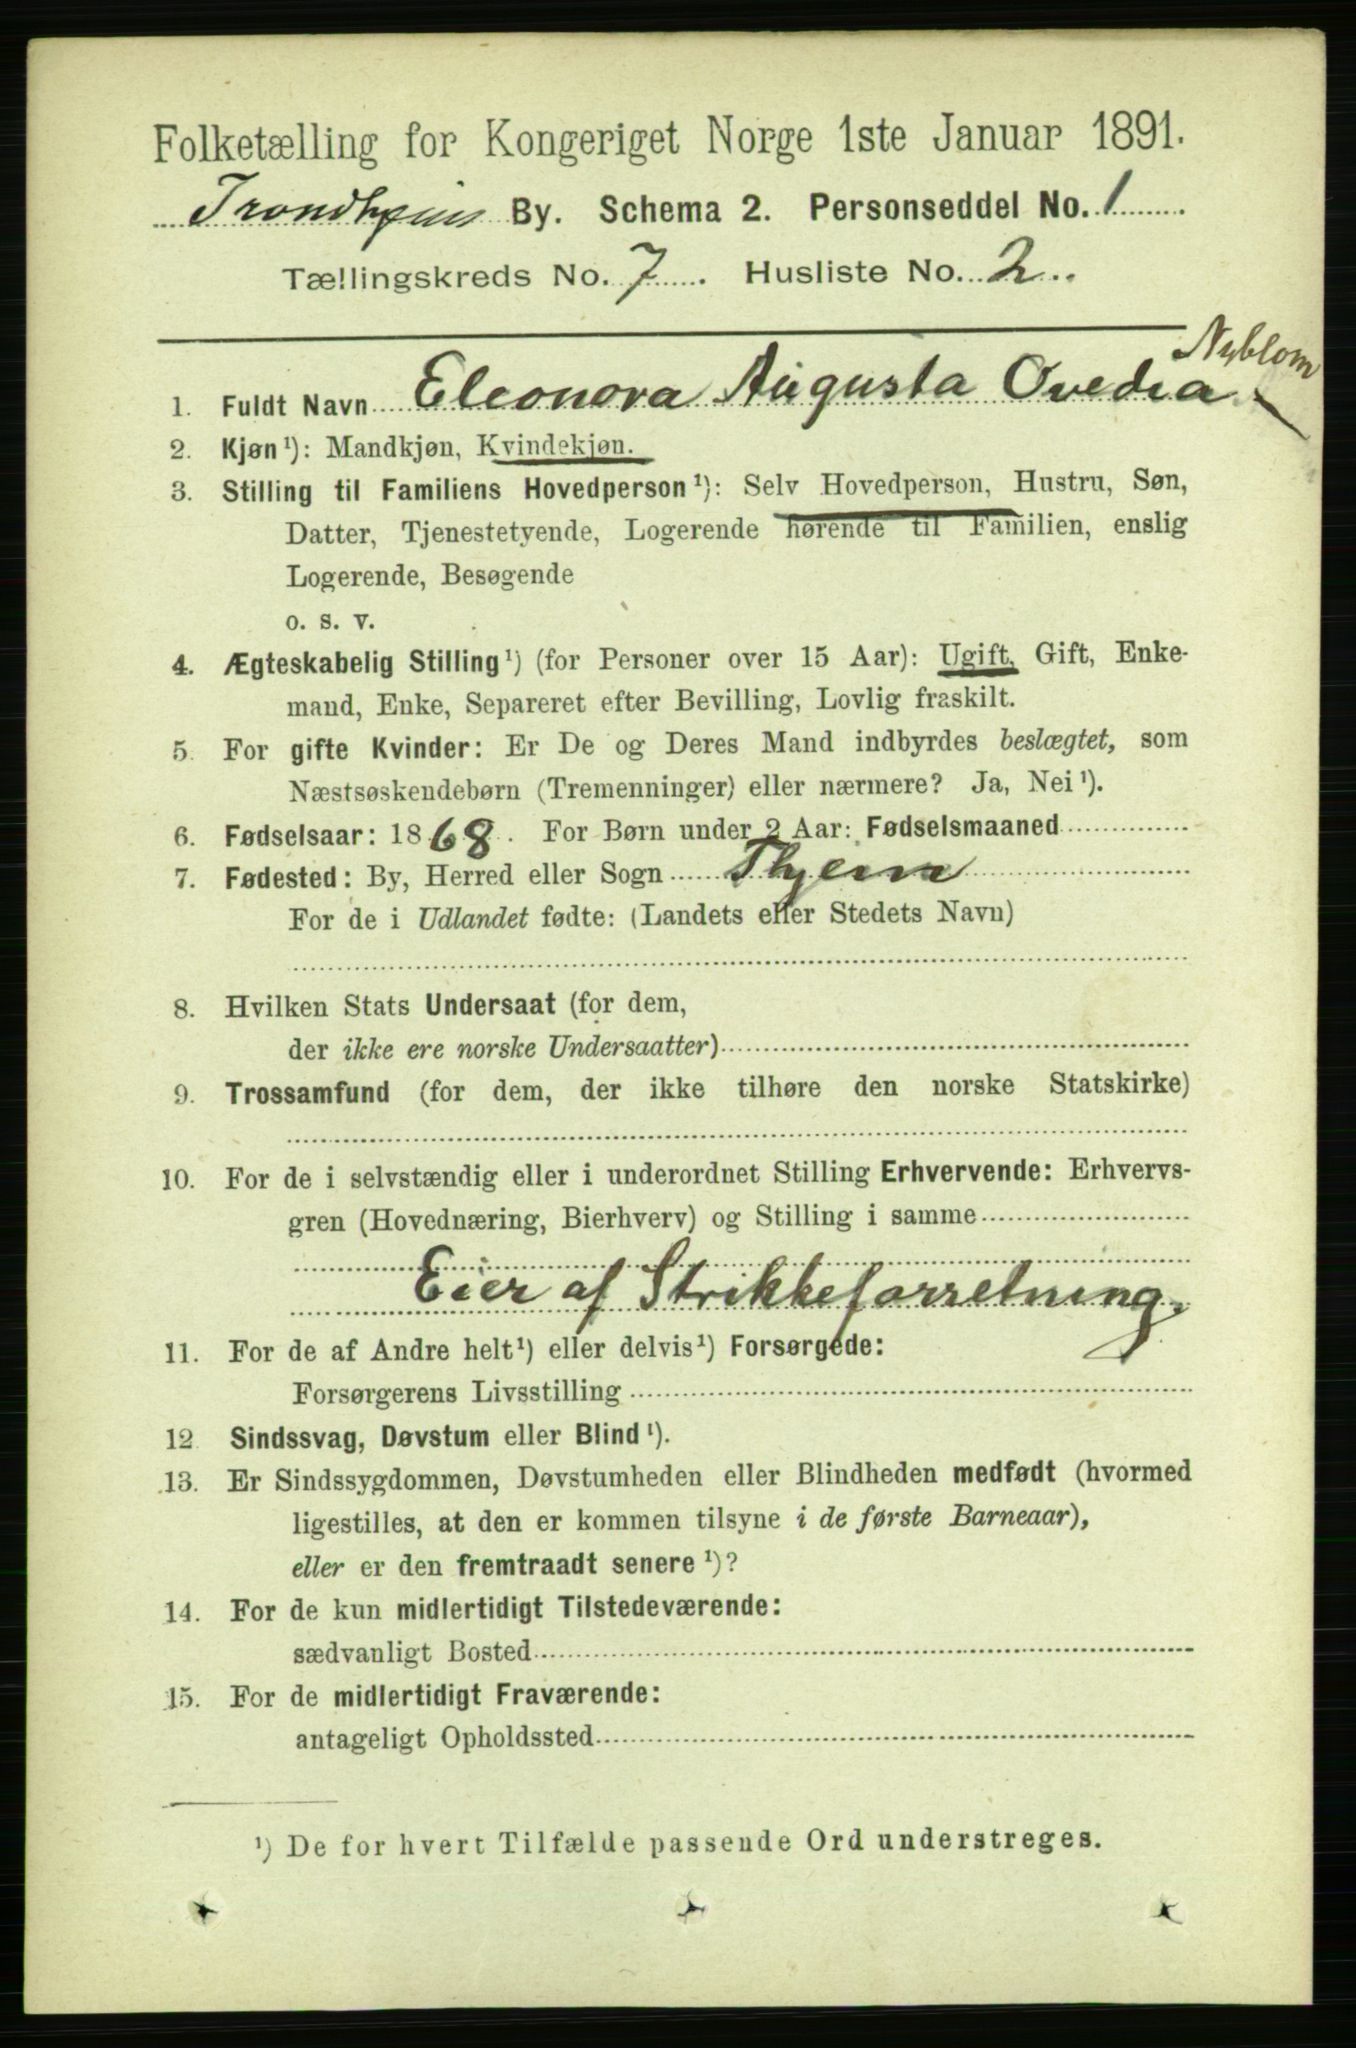 Folketælling for Kongeriget Norge 1ste Januar 1891.
Trondhjem By. Schema 2. Personseddel No. 1
Tællingskreds No. 7. Husliste No. 2.
Nyblom
1. Fuldt Navn Eleonora Augusta Ovedia
2. Kjøn ¹): Mandkjøn, Kvindekjøn.
3. Stilling til Familiens Hovedperson ¹): Selv Hovedperson, Hustru, Søn,
Datter, Tjenestetyende, Logerende hørende til Familien, enslig
Logerende, Besøgende
o. s. v.
4. Ægteskabelig Stilling ¹) (for Personer over 15 Aar): Ugift, Gift, Enke-
mand, Enke, Separeret efter Bevilling, Lovlig fraskilt.
5. For gifte Kvinder: Er De og Deres Mand indbyrdes beslægtet, som
Næstsøskendebørn (Tremenninger) eller nærmere? Ja, Nei ¹).
6. Fødselsaar: 1868. For Børn under 2 Aar: Fødselsmaaned
7. Fødested: By, Herred eller Sogn Thjem
For de i Udlandet fødte: (Landets eller Stedets Navn)
8. Hvilken Stats Undersaat (for dem,
der ikke ere norske Undersaatter)
9. Trossamfund (for dem, der ikke tilhøre den norske Statskirke)
10. For de i selvstændig eller i underordnet Stilling Erhvervende: Erhvervs-
gren (Hovednæring, Bierhverv) og Stilling i samme
Eier af Strikkeforretning.
11. For de af Andre helt ¹) eller delvis ¹) Forsørgede:
Forsørgerens Livsstilling
12 Sindssvag, Døvstum eller Blind ¹).
13. Er Sindssygdommen, Døvstumheden eller Blindheden medfødt (hvormed
ligestilles, at den er kommen tilsyne i de første Barneaar),
eller er den fremtraadt senere ¹)?
14. For de kun midlertidigt Tilstedeværende:
sædvanligt Bosted
15. For de midlertidigt Fraværende:
antageligt Opholdssted
¹) De for hvert Tilfælde passende Ord understreges.